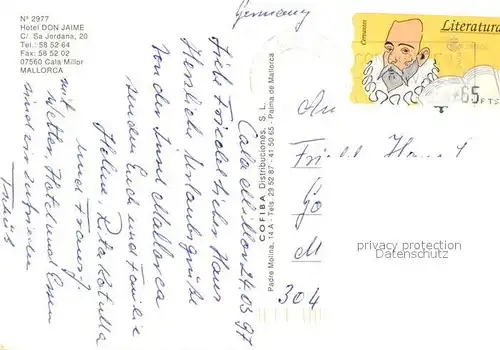 Nº 2977
Hotel DON JAIME
C/. Sa Jordana, 20
Tel.: 58 52 64
Fax: 58 52 02
07560 Cala Millor
MALLORCA
Germany
Cervantes
Literatura
+65 PTS
Cala Millor 24.03.97
Liebe Friedel liebes Haus
Herzliche Urlaubsgrüße
von der Insel Mallorca
senden Euch und Familie
Helene, Rita
und Franz.
mit Wetter, Hotel und Essen
sind wir zufrieden
COFIBA Distribuciones, S. L.
Padre Molina, 14 A - Tels. 29 52 87 - 41 50 65 - Palma de Mallorca
An
304
privacy protection
watermark